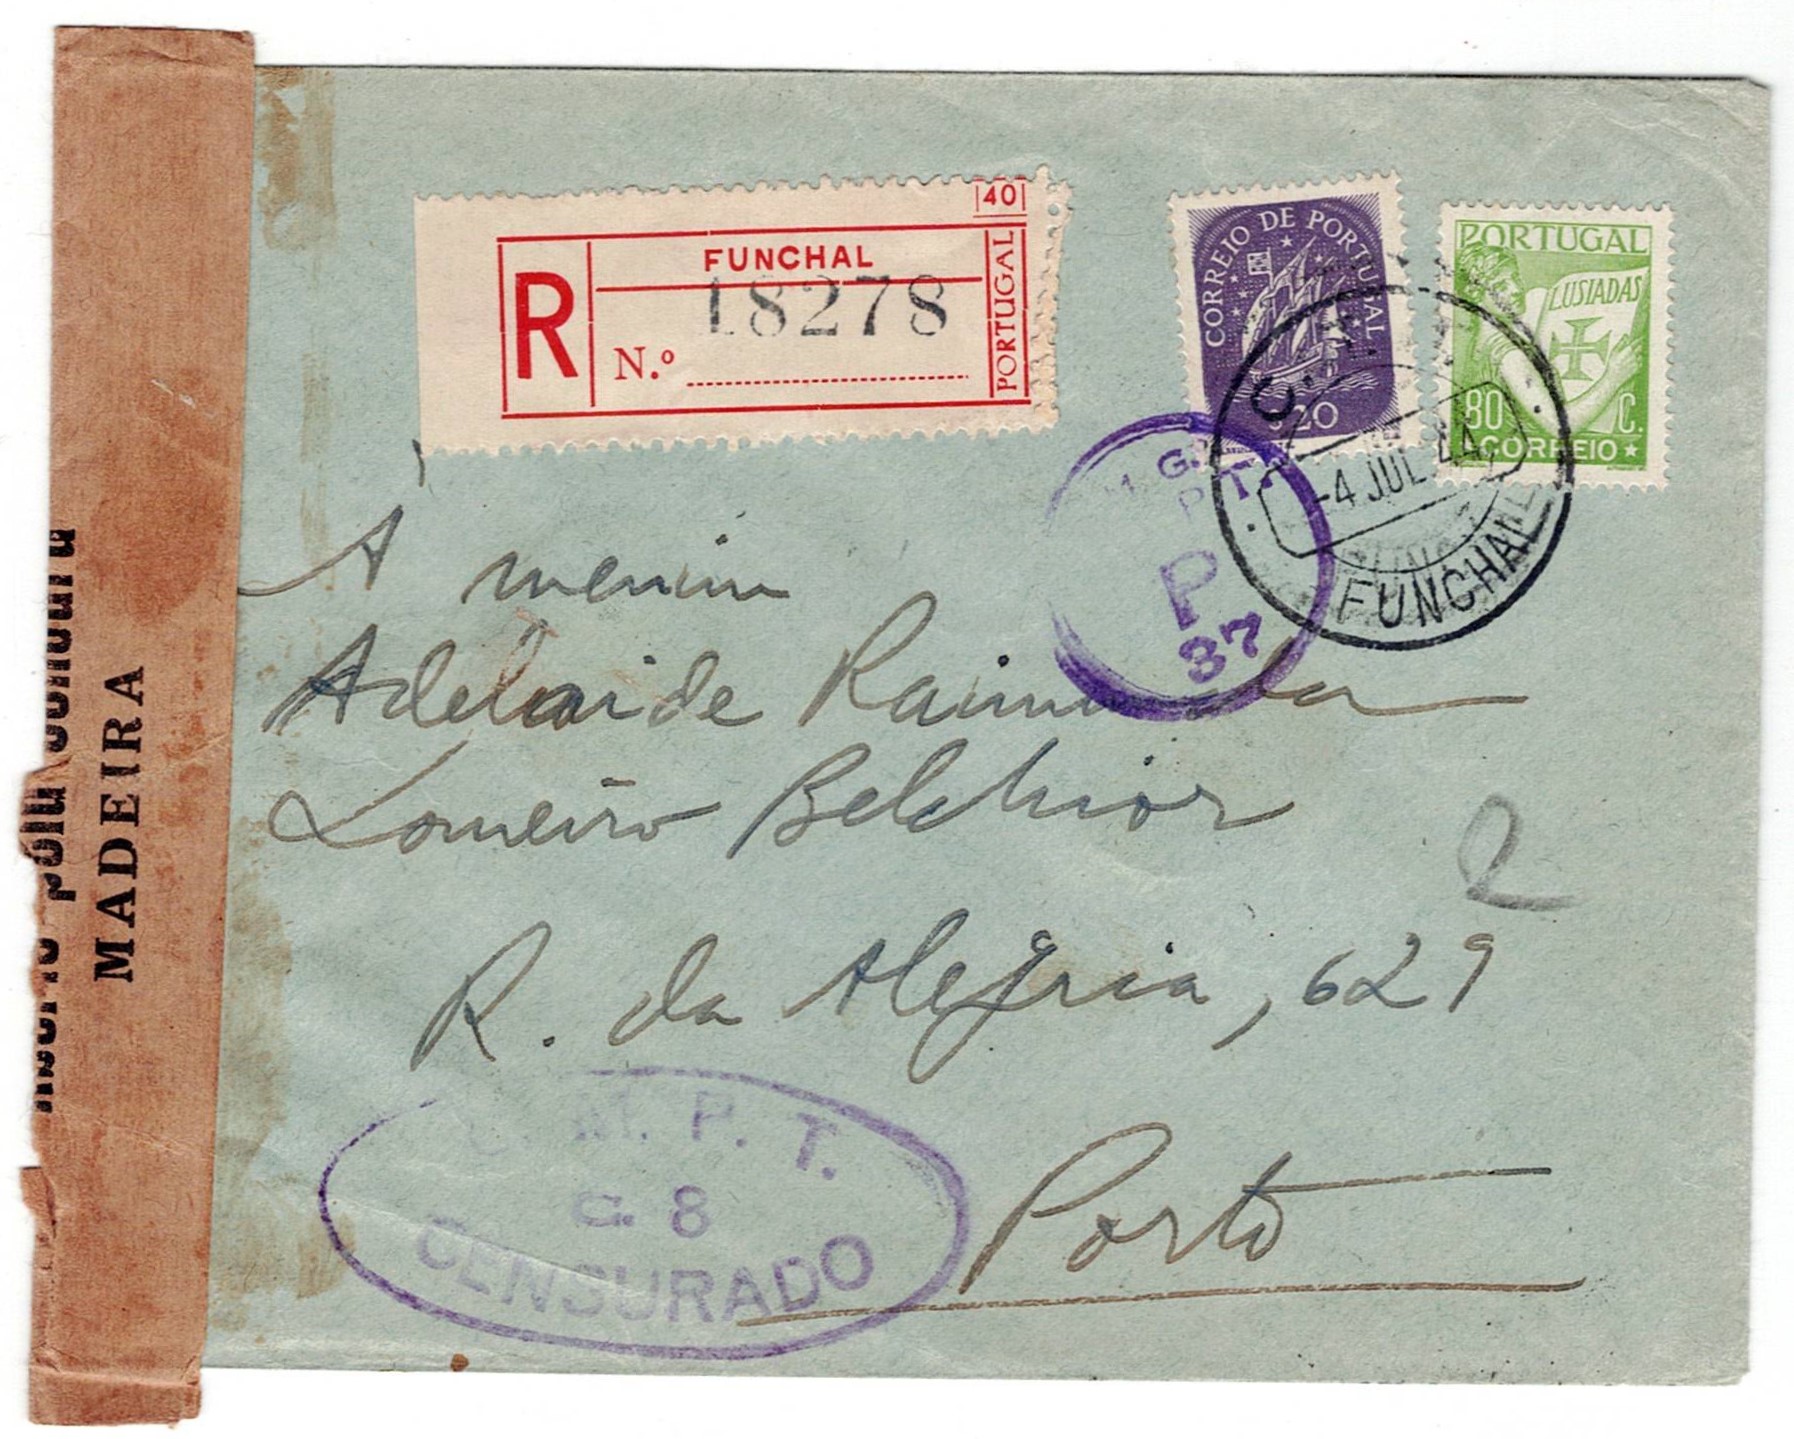 40
FUNCHAL
R
18278
N.º
PORTUGAL
CORREIO DE PORTUGAL
20
PORTUGAL
LUSIADAS
80 C.
CORREIO
-4 JUL 44
FUNCHAL
P
37
A menina
Adelaide Raimunda
Loureiro Belchior
R. da Alegria, 629
Porto
2
M. P. T.
G. 8
CENSURADO
Aberto pela censura
MADEIRA